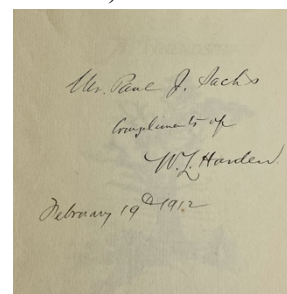 Mr. Paul J. Sachs
Compliments of
W. L. Harden.
February 19th 1912